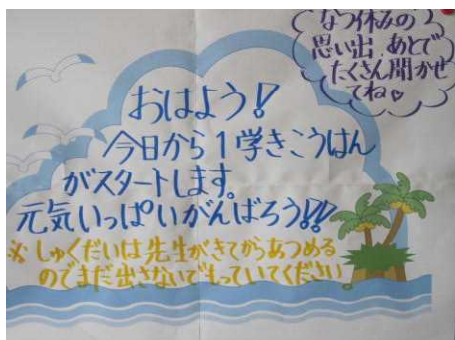 なつ休みの
思い出、あとで
たくさん聞かせ
てね♡
おはよう!
今日から1学きこうはん
がスタートします。
元気いっぱいがんばろう!!
※しゅくだいは先生がきてからあつめる
のでまだ出さないでもっていてください